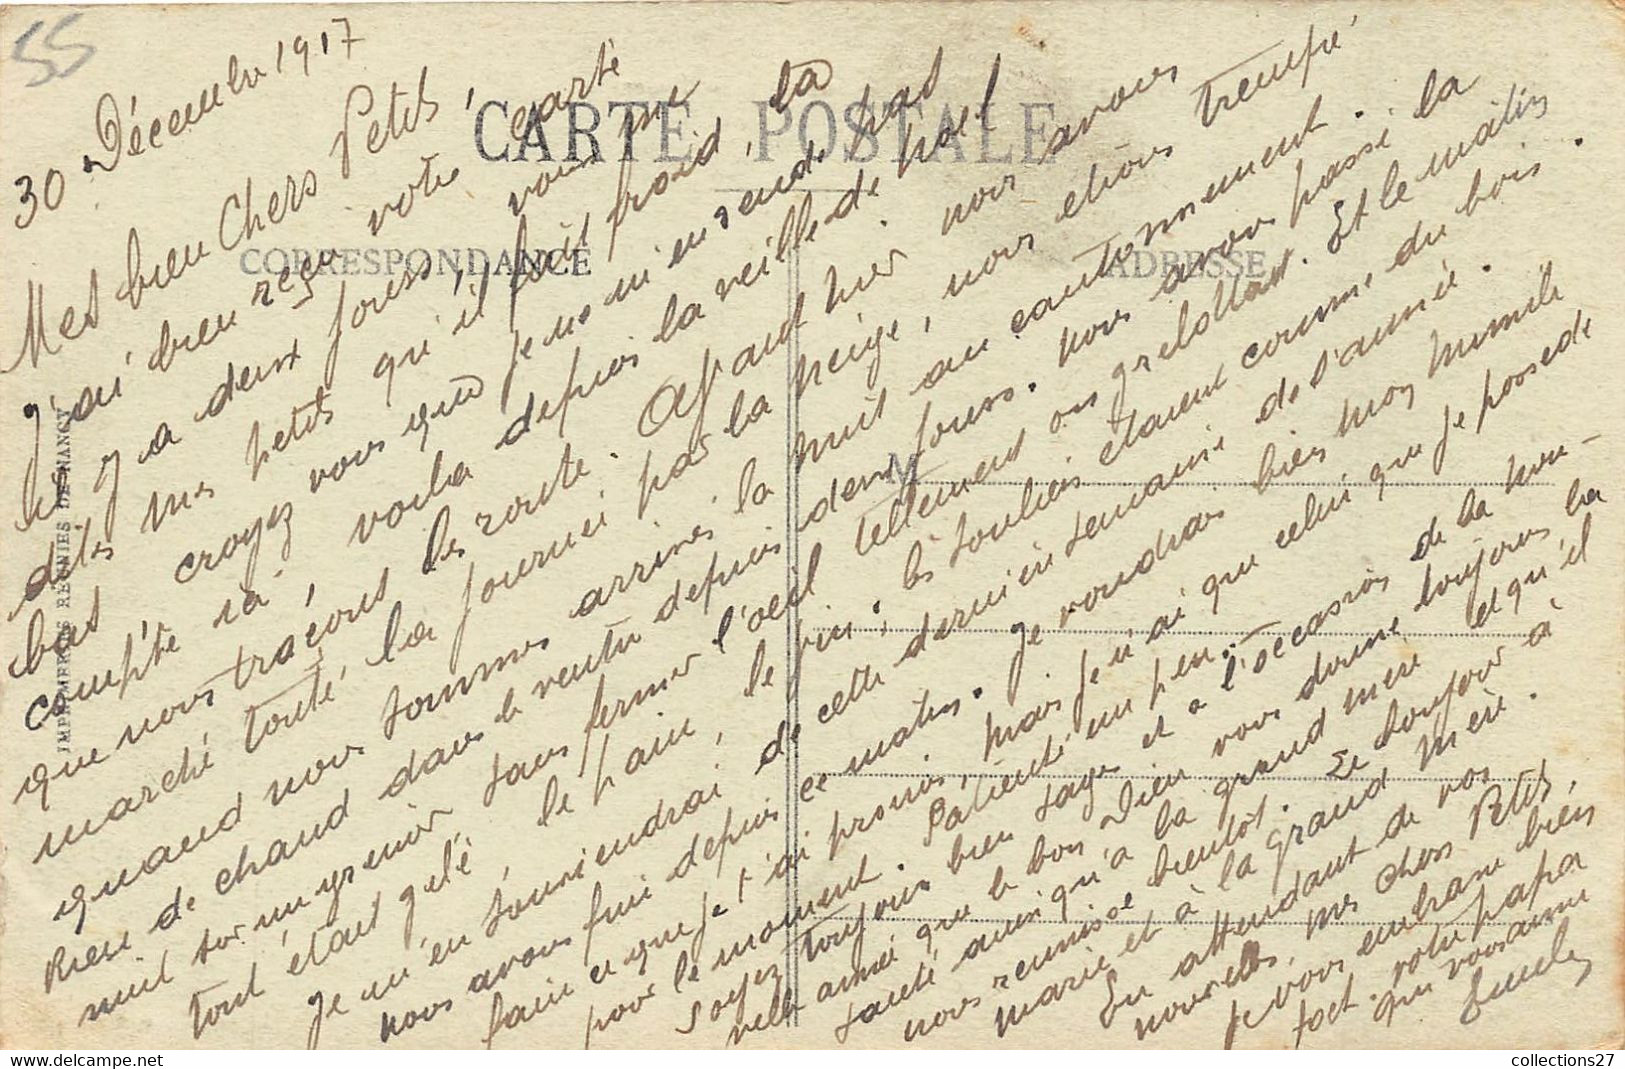 55
CARTE POSTALE
CORRESPONDANCE
ADRESSE
M
IMPRIMERIES REUNIES DE NANCY
30 Décembre 1917
Mes bien Chers Petits,
J'ai bien reçu votre carte
il y a deux jours, vous me
dites mes petits qu'il fait froid, la
bas croyez vous que je ne m'en rende pas
compte ici, voila depuis la veille de noel
que nous traçons les route. Apart hier nous avons
marché toute la journeé par la neige, nous etions trempé
quand nous sommes arrivés la nuit au cantonnement.
Rien de chaud dans le ventre depuis deux jours. Nous avons passé la
nuit sur un grenier sans fermer l'oeil tellement on grelottait. Et le matin
tout était gelé, le pain, le vin, les souliers étaient comme du bois.
Je m'en souviendrai de cette dernière semaine de l'année.
nous avons fini depuis ce matin. Je voudrais bien mon mimile
faire ce que je t'ai promis, mais je n'ai que celui que je possede
pour le moment. Patiente un peu.
Soyez toujours bien sages et a l'occasion de la nou-
velle année que le bon Dieu vous donne toujours la
santé ainsi qu'a la grand mère et qu'il
nous reunisse bientot. Le bonjour à
marie et à la grand mère.
En attendant de vos
nouvelles, mes chers Petits,
je vous embrasse bien
fort. votre papa
qui vous aime